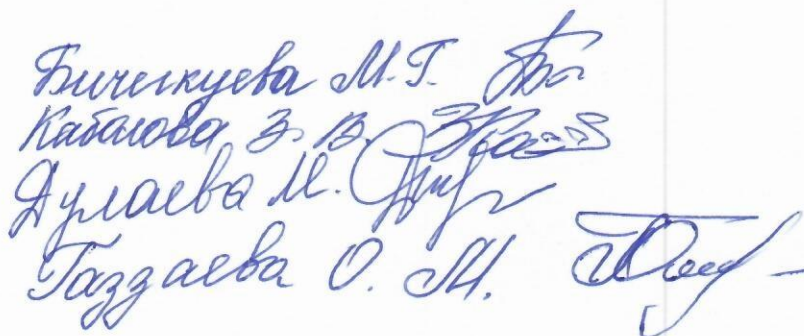 Бичегкуева М.Г.
Кабалова З. В.
Дулаева М.
Газзаева О. М.